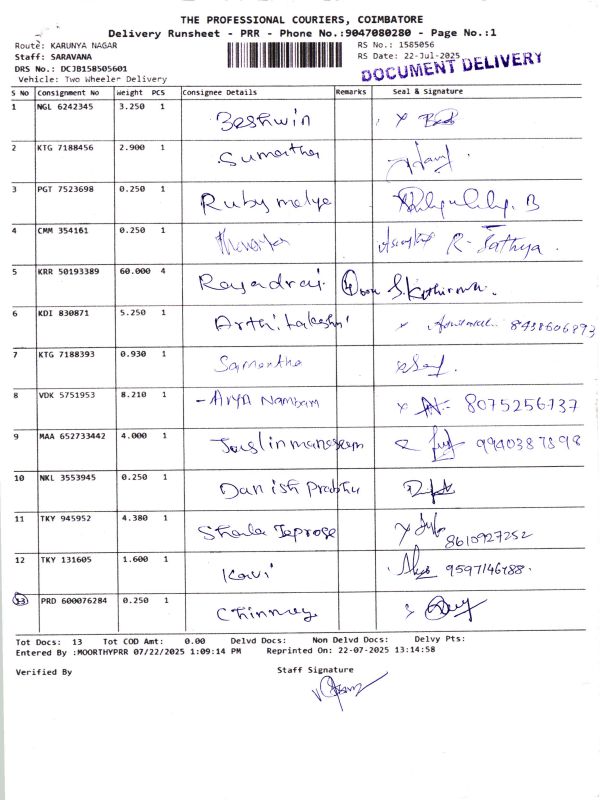 THE PROFESSIONAL COURIERS, COIMBATORE
Delivery Runsheet - PRR - Phone No.:9047080280 - Page No.:1
Route: KARUNYA NAGAR
RS No.: 1585056
Staff: SARAVANA
RS Date: 22-Jul-2025
DRS No.: DCJB158505601
DOCUMENT DELIVERY
Vehicle: Two Wheeler Delivery
S No Consignment No Weight PCS Consignee Details Remarks Seal & Signature
1 NGL 6242345 3.250 1 Beshwin
2 KTG 7188456 2.900 1
3 PGT 7523698 0.250 1 Ruby
4 CMM 354161 0.250 1 R. Sathya
5 KRR 50193389 60.000 4
6 KDI 830871 5.250 1 8438606893
7 KTG 7188393 0.930 1 Samantha
8 VDK 5751953 8.210 1 - Arya Nambam 8075256737
9 MAA 652733442 4.000 1 9940387898
10 NKL 3553945 0.250 1 Danish Prabhu
11 TKY 945952 4.380 1 8610927252
12 TKY 131605 1.600 1 Kavi 9597146788
13 PRD 600076284 0.250 1 Chinmay
Tot Docs: 13 Tot COD Amt: 0.00 Delvd Docs: Non Delvd Docs: Delvy Pts:
Entered By :MOORTHYPRR 07/22/2025 1:09:14 PM Reprinted On: 22-07-2025 13:14:58
Verified By Staff Signature